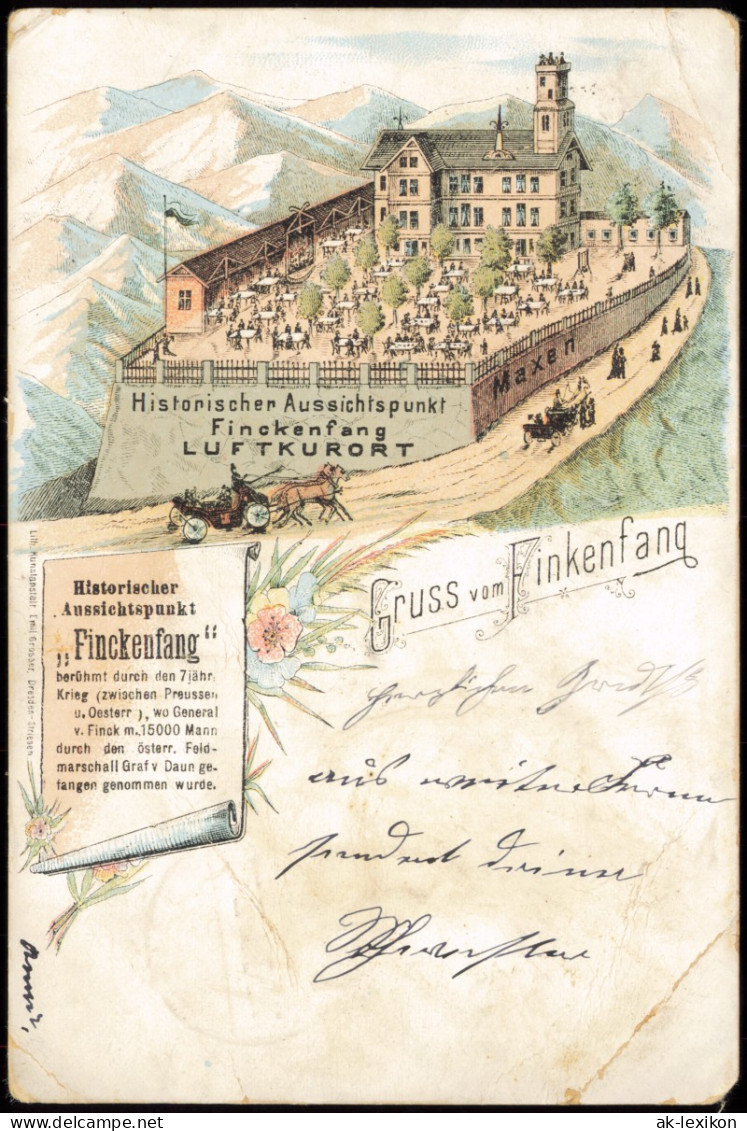 Maxen
Historischer Aussichtspunkt
Finckenfang
LUFTKURORT
Gruss vom Finkenfang
Historischer
Aussichtspunkt
„Finckenfang“
berühmt durch den 7jähr.
Krieg (zwischen Preussen
u. Oesterr.), wo General
v. Finck m. 15000 Mann
durch den österr. Feld-
marschall Graf v Daun ge-
fangen genommen wurde.
Lith. Kunstanstalt Emil Grosser, Dresden-Striesen
herzlichen Gruß
aus weiter Ferne
sendet deine
Schwester
ak-lexikon